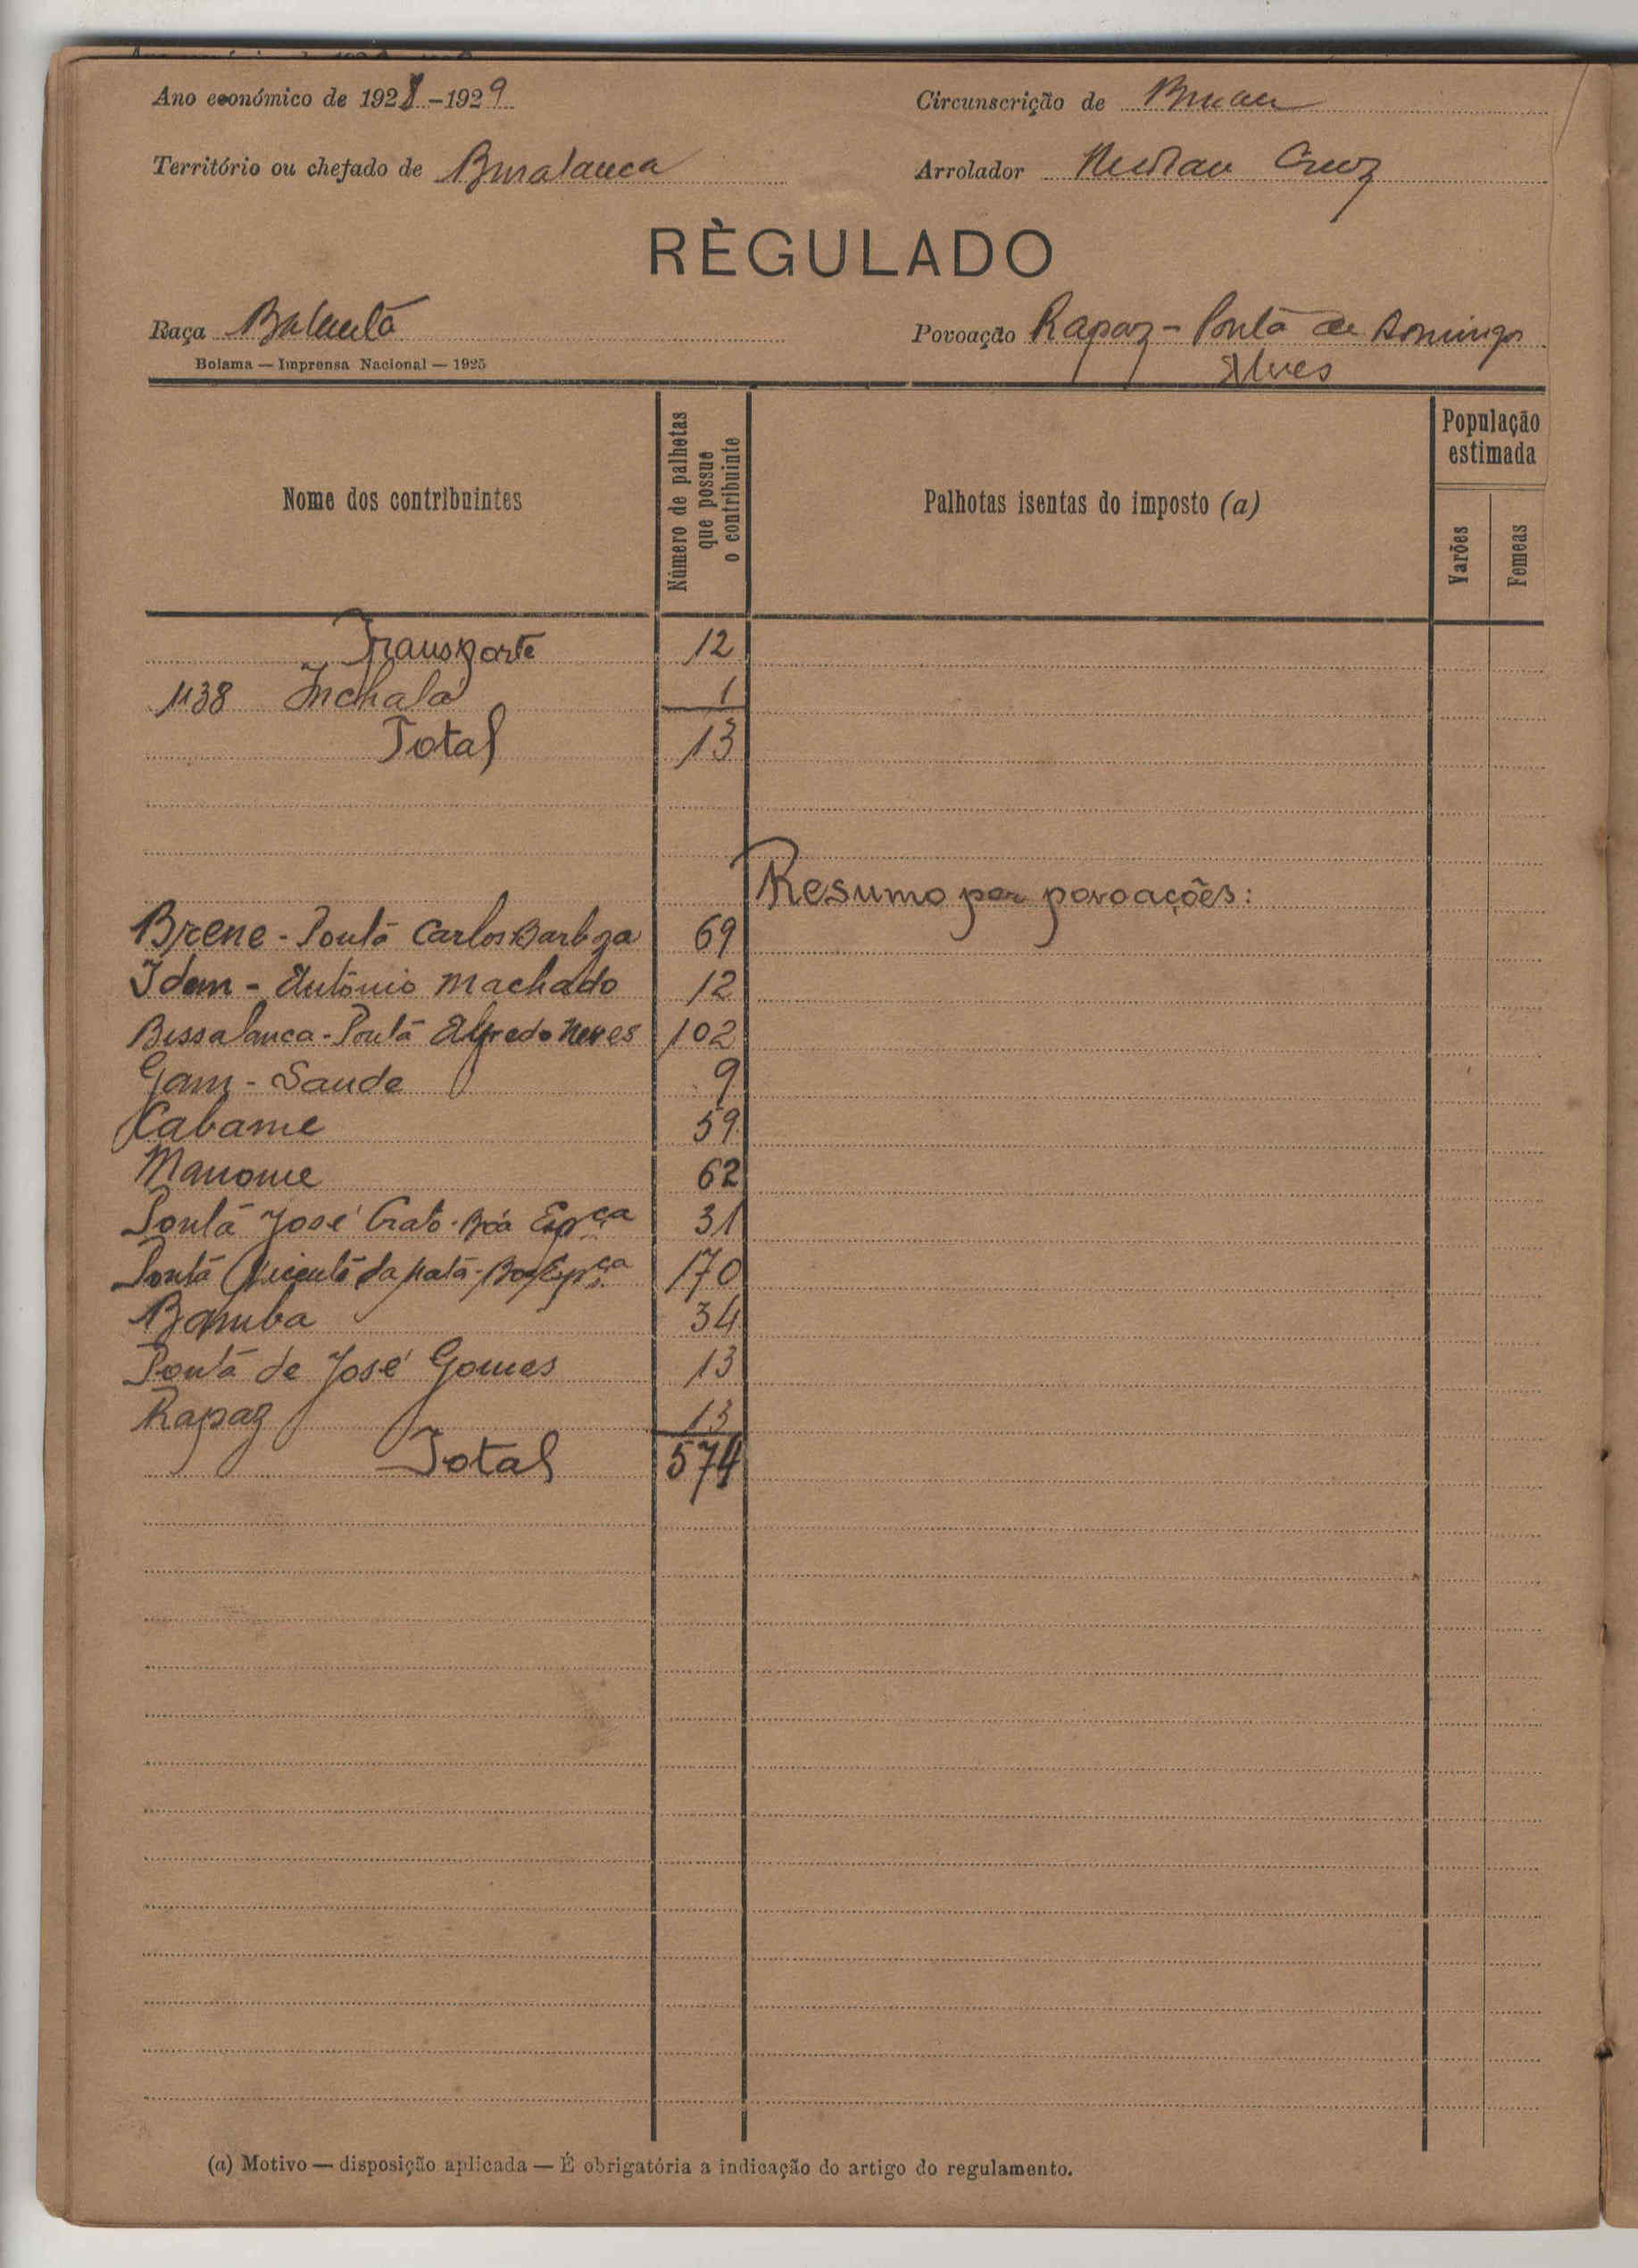 Ano económico de 1928-1929
Circunscrição de Bissau
Território ou chefado de Bissalanca
Arrolador Nicolau Cruz
RÈGULADO
Raça Balanta
Povoação Rapaz - Ponta de Domingos
Alves
Bolama — Imprensa Nacional — 1925
Nome dos contribuintes
Número de palhotas
que possue
o contribuinte
Palhotas isentas do imposto (a)
População
estimada
Varões
Femeas
Transporte 12
1138 Inchalá 1
Total 13
Resumo por povoações:
Brene - Ponta Carlos Barboza 69
Idem - António Machado 12
Bissalanca - Ponta Alfredo Neves 102
Gam - Saude 9
Cabame 59
Manome 62
Ponta José Crato - Bôa Espça 31
Ponta Vicente da Mata - Boa Espça 170
Banuba 34
Ponta de José Gomes 13
Rapaz 13
Total 574
(a) Motivo — disposição aplicada — É obrigatória a indicação do artigo do regulamento.